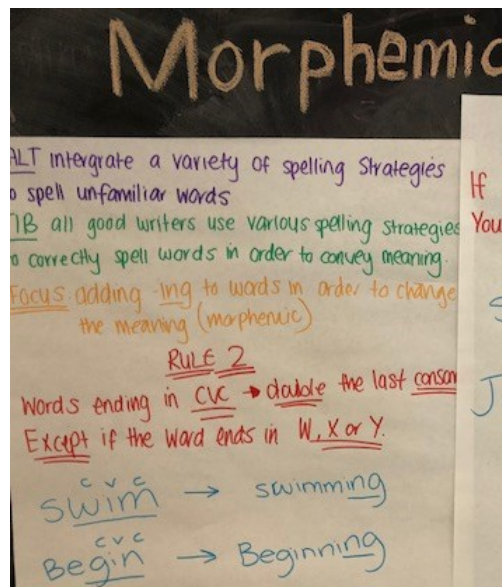 Morphemic
ALT intergrate a variety of spelling Strategies
o spell unfamiliar words
TIB all good writers use various spelling strategies
o correctly spell words in order to convey meaning.
Focus: adding -ing to words in order to change
the meaning (morphemic)
RULE 2
Words ending in CVC → double the last conson
Except if the word ends in W, X or Y.
c v c
swim → swimming
c v c
Begin → Beginning
If
You
J